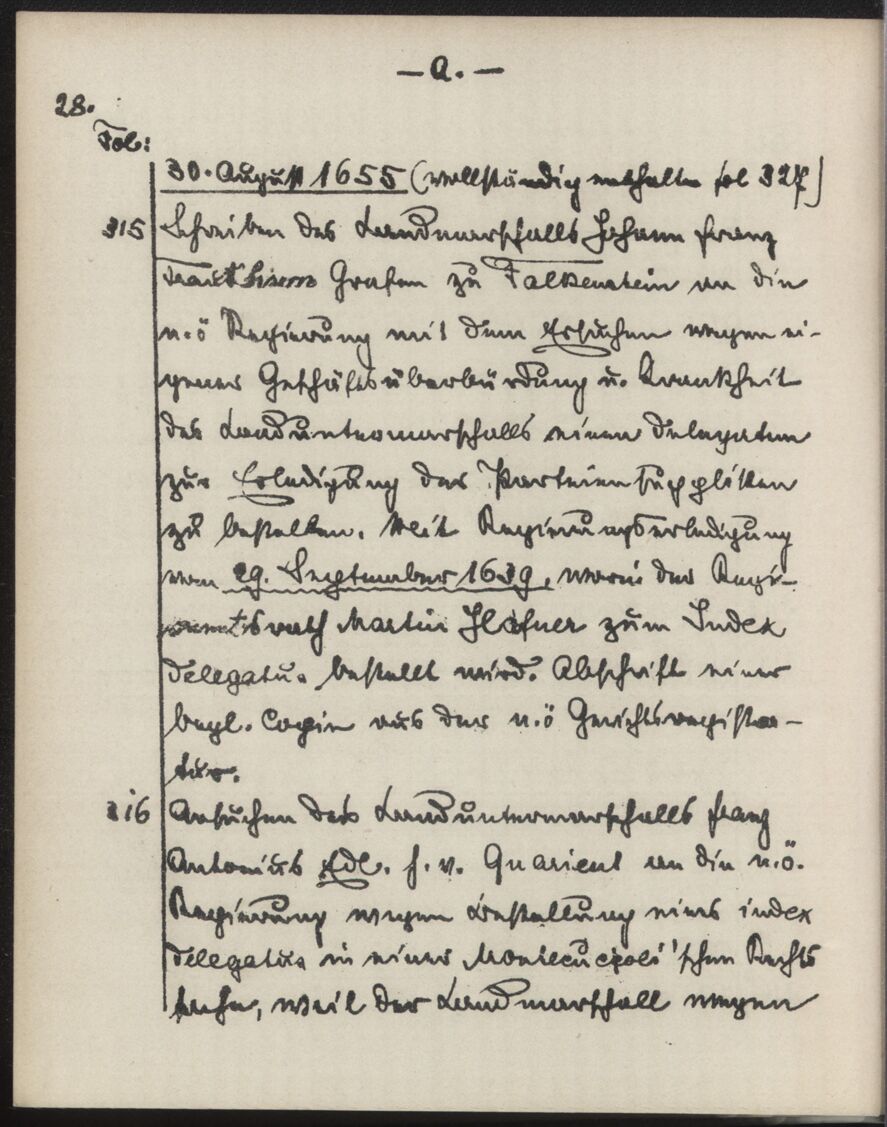 — A. —
28.
Fol:
30. August 1655 (vollständig enthalten fol 327)
315 Schreiben des Landmarschalls Johann Franz
Trautsamm Grafen zu Falkenstein an die
n.ö Regierung mit dem Ersuchen wegen ei-
gener Geschäftsüberbürdung u. Krankheit
des Landuntermarschalls einen Delegaten
zur Erledigung der Parteiensuppliken
zu bestellen. Mit Regierungserledigung
vom 29. September 1639, worin der Regi-
mentsrath Martin Hafner zum Index
delegatus bestellt wird. Abschrift einer
begl. Copie aus der n.ö Gerichtsregistra-
tur.
316 Ansuchen des Landuntermarschalls Franz
Antonius Edl. H. v. Quarient an die n.ö.
Regierung wegen Bestellung eines index
delegatus in einer Montecuccoli'schen Rechts
sache, weil der Landmarschall wegen